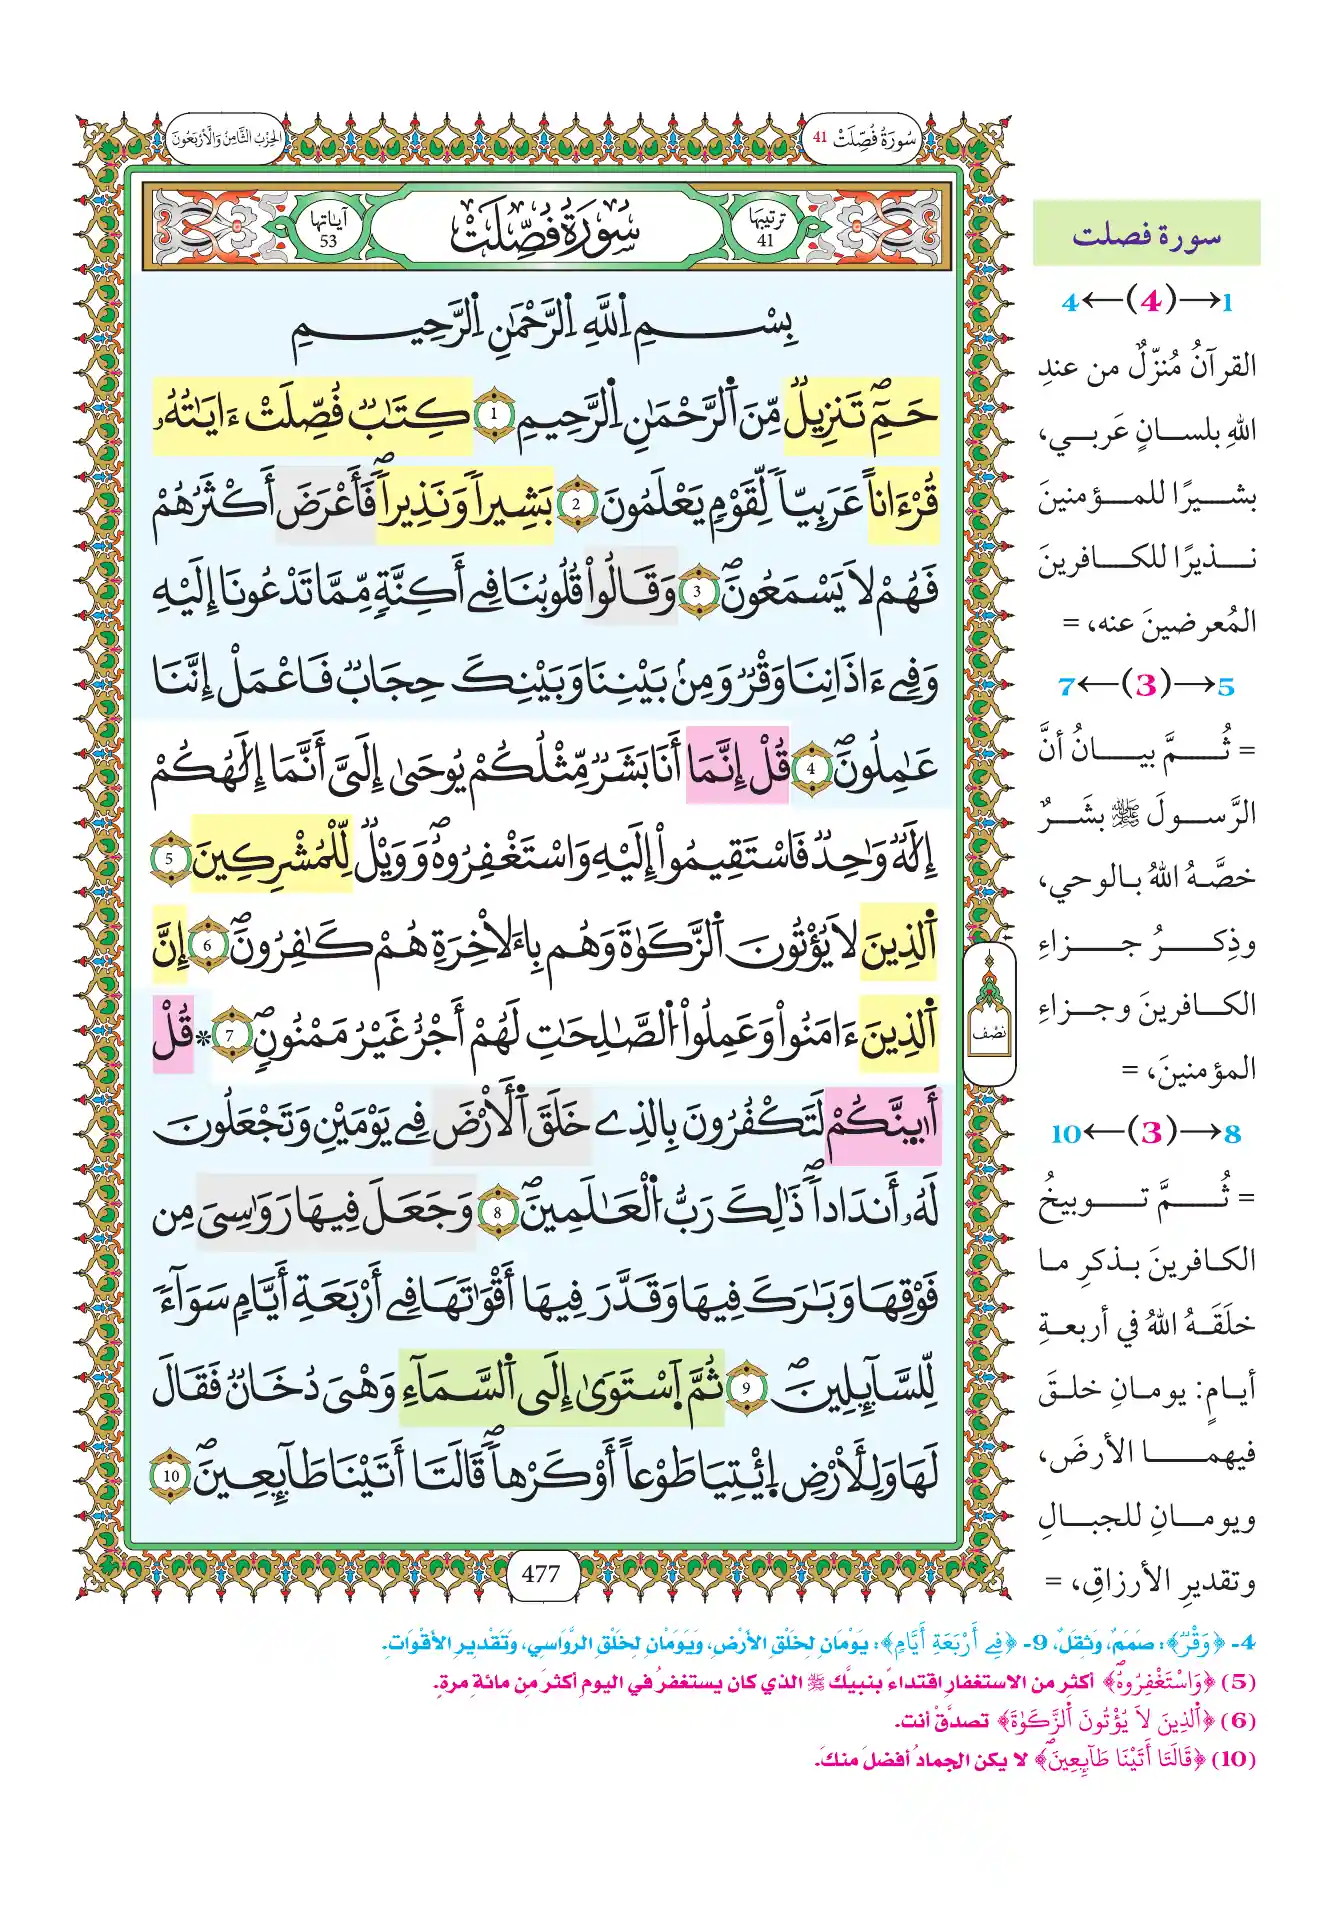 سُورَةُ فُصِّلَتْ 41
الحِزْبُ الثَّامِنُ وَالْأَرْبَعُونَ
ترتيبها 41
سُورَةُ فُصِّلَتْ
آياتها 53
بِسْمِ اِ۬للَّهِ اِ۬لرَّحْمَٰنِ اِ۬لرَّحِيمِ
حَمِٓۖ تَنزِيلٞ مِّنَ اَ۬لرَّحْمَٰنِ اِ۬لرَّحِيمِ 1 كِتَٰبٞ فُصِّلَتْ ءَايَٰتُهُۥ
قُرْءَاناً عَرَبِيّاٗ لِّقَوْمٖ يَعْلَمُونَ 2 بَشِيراٗ وَنَذِيراٗۖ فَأَعْرَضَ أَكْثَرُهُمْ
فَهُمْ لَا يَسْمَعُونَۖ 3 وَقَالُواْ قُلُوبُنَا فِےٓ أَكِنَّةٖ مِّمَّا تَدْعُونَآ إِلَيْهِ
وَفِےٓ ءَاذَانِنَا وَقْرٞ وَمِنۢ بَيْنِنَا وَبَيْنِكَ حِجَابٞ فَاعْمَلِ اِنَّنَا
عَٰمِلُونَۖ 4 قُلْ إِنَّمَآ أَنَا بَشَرٞ مِّثْلُكُمْ يُوحَىٰٓ إِلَيَّ أَنَّمَآ إِلَٰهُكُمْ
إِلَٰهٞ وَٰحِدٞ فَاسْتَقِيمُوٓاْ إِلَيْهِ وَاسْتَغْفِرُوهُۖ وَوَيْلٞ لِّلْمُشْرِكِينَ 5
اَ۬لذِينَ لَا يُؤْتُونَ اَ۬لزَّكَوٰةَ وَهُم بِالَاخِرَةِ هُمْ كَٰفِرُونَۖ 6 إِنَّ
اَ۬لذِينَ ءَامَنُواْ وَعَمِلُواْ اُ۬لصَّٰلِحَٰتِ لَهُمْ أَجْرٌ غَيْرُ مَمْنُونٖۖ 7 * قُلْ
أَي۪نَّكُمْ لَتَكْفُرُونَ بِالذِے خَلَقَ اَ۬لَارْضَ فِے يَوْمَيْنِ وَتَجْعَلُونَ
لَهُۥٓ أَندَاداٗۖ ذَٰلِكَ رَبُّ اُ۬لْعَٰلَمِينَۖ 8 وَجَعَلَ فِيهَا رَوَٰسِيَ مِن
فَوْقِهَا وَبَٰرَكَ فِيهَا وَقَدَّرَ فِيهَآ أَقْوَٰتَهَا فِےٓ أَرْبَعَةِ أَيَّامٖ سَوَآءٗ
لِّلسَّآئِلِينَۖ 9 ثُمَّ اَ۪سْتَوَىٰٓ إِلَى اَ۬لسَّمَآءِ وَهْيَ دُخَانٞ فَقَالَ
لَهَا وَلِلَارْضِ اِ۪ئْتِيَا طَوْعاً أَوْ كَرْهاٗۖ قَالَتَآ أَتَيْنَا طَآئِعِينَۖ 10
نصف
477
سورة فصلت
1→(4)←4
القرآنُ مُنزّلٌ من عندِ
اللهِ بلسانٍ عَربي،
بشيرًا للمؤمنينَ
نذيرًا للكافرينَ
المُعرضينَ عنه، =
5→(3)←7
= ثُمَّ بيانُ أنَّ
الرَّسولَ ﷺ بشَرٌ
خصَّهُ اللهُ بالوحي،
وذِكرُ جزاءِ
الكافرينَ وجزاءِ
المؤمنينَ، =
8→(3)←10
= ثُمَّ توبيخُ
الكافرينَ بذكرِ ما
خلَقَهُ اللهُ في أربعةِ
أيامٍ: يومانِ خلقَ
فيهما الأرضَ،
ويومانِ للجبالِ
وتقديرِ الأرزاقِ، =
4- ﴿وَقْرٞ﴾: صَمَمٌ، وَثِقَلٌ، 9- ﴿فِےٓ أَرْبَعَةِ أَيَّامٖ﴾: يَوْمَانِ لِخَلْقِ الأَرْضِ، وَيَوْمَانِ لِخَلْقِ الرَّوَاسِي، وَتَقْدِيرِ الأَقْوَاتِ.
(5) ﴿وَاسْتَغْفِرُوهُۖ﴾ أكثِر من الاستغفارِ اقتداءً بنبيِّك ﷺ الذي كان يستغفرُ في اليومِ أكثرَ مِن مائةِ مرةٍ.
(6) ﴿اَ۬لذِينَ لَا يُؤْتُونَ اَ۬لزَّكَوٰةَ﴾ تصدَّقْ أنت.
(10) ﴿قَالَتَآ أَتَيْنَا طَآئِعِينَۖ﴾ لا يكن الجمادُ أفضلَ منكَ.